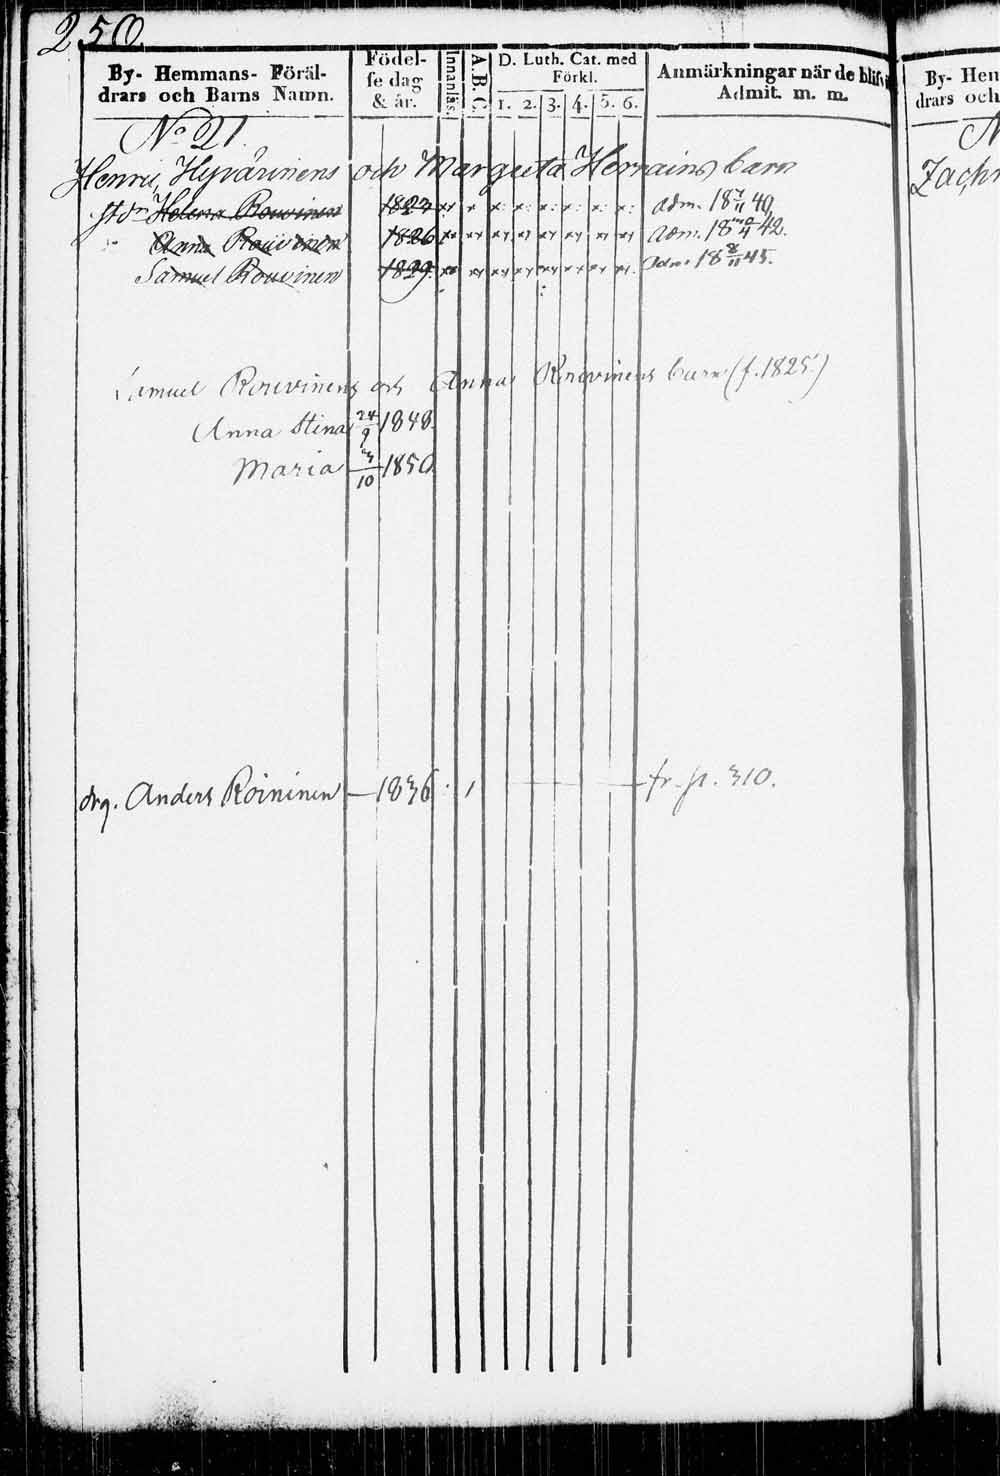 250.
By- Hemmans- Föräl-
drars och Barns Namn.
Födel-
se dag
& år.
Innanläs.
A. B. C.
D. Luth. Cat. med
Förkl.
1. 2. 3. 4. 5. 6.
Anmärkningar när de blifv
Admit. m. m.
No 21.
Henric Hyvärinens och Margreeta Herrains barn
Helena Rouvinen 1823 adm. 18 7/11 40,
Anna Rouvinen 1826 adm. 18 /4 42.
Samuel Rouvinen 1829. adm. 18 8/11 45.
Samuel Rouvinens och Anna Rouvinens barn (f. 1825.)
Anna Stina 24/9 1848.
Maria /10 1850.
drg. Anders Roininen 1836 fr. p. 310.
By- Hem
drars och
N
Zachr